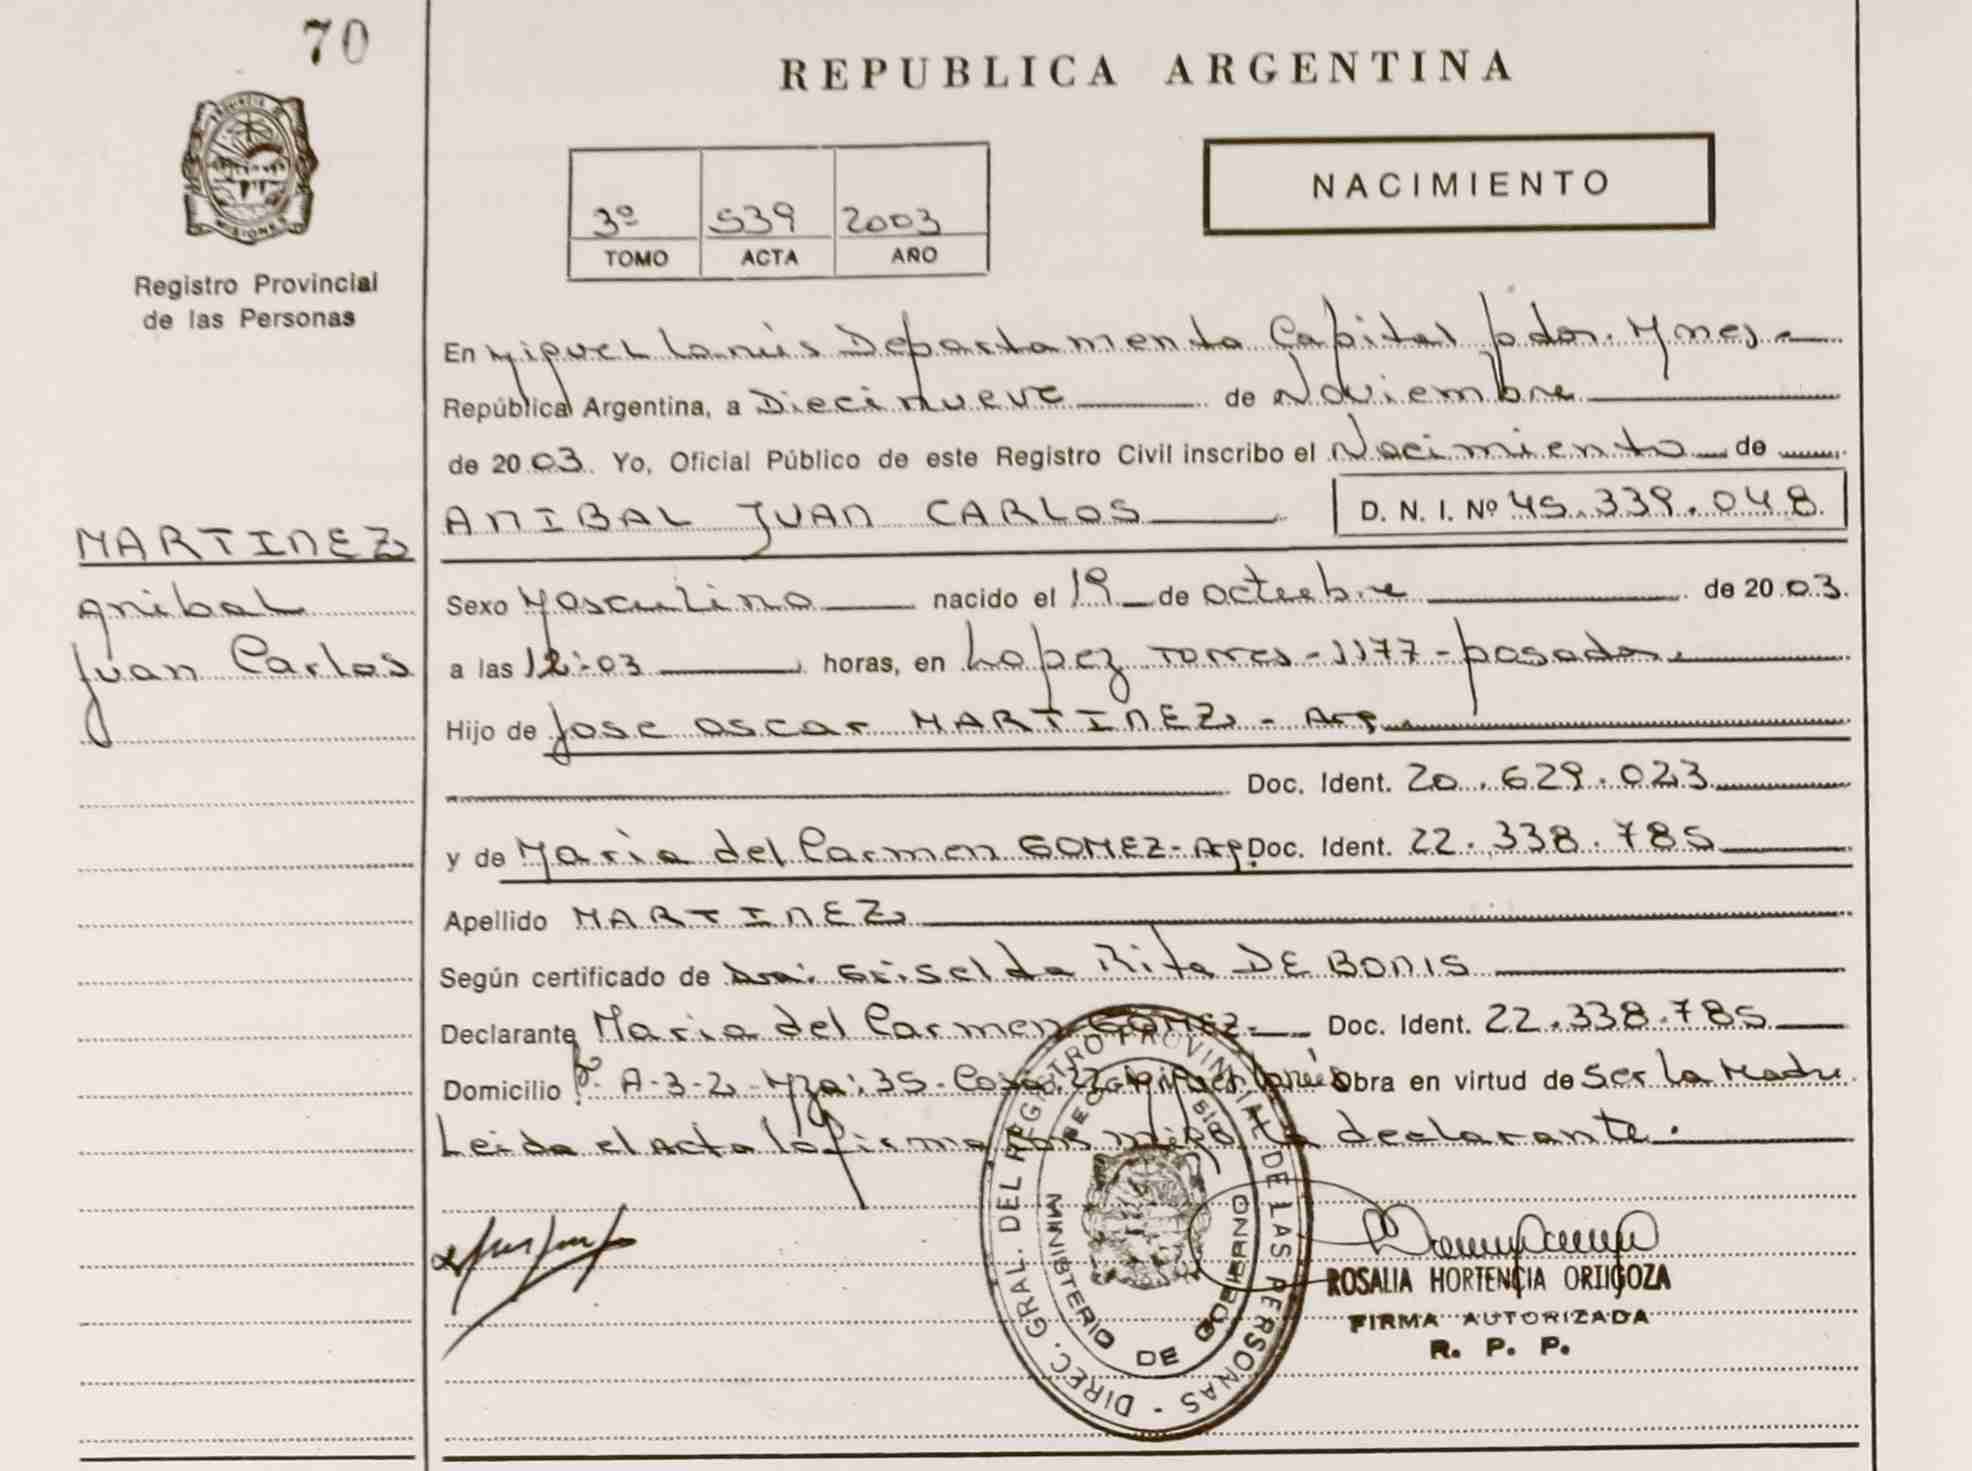 70
REPUBLICA ARGENTINA
MISIONES
Registro Provincial
de las Personas
3º 539 2003
TOMO ACTA AÑO
NACIMIENTO
En Miguel Lanús Departamento Capital pdas. Mnes.
República Argentina, a Diecinueve de Noviembre
de 2003. Yo, Oficial Público de este Registro Civil inscribo el Nacimiento de
ANIBAL JUAN CARLOS D. N. I. Nº 45.339.048
MARTINEZ
Anibal
Juan Carlos
Sexo Masculino nacido el 19 de octubre de 2003.
a las 12:03 horas, en Lopez Torres - 1177 - posadas.
Hijo de Jose Oscar MARTINEZ - Arg.
Doc. Ident. 20.629.023
y de Maria del Carmen GOMEZ - Arg. Doc. Ident. 22.338.785
Apellido MARTINEZ
Según certificado de Dra: Griselda Rita DE BONIS
Declarante Maria del Carmen GOMEZ - Doc. Ident. 22.338.785
Domicilio A-3-2 - Mza: 35 - Casa: 22 - Miguel Lanús Obra en virtud de Ser la Madre
Leida el acta la firma con migo la declarante.
DIREC. GRAL. DEL REGISTRO PROVINCIAL DE LAS PERSONAS
MINISTERIO DE GOBIERNO
ROSALIA HORTENCIA ORTIGOZA
FIRMA AUTORIZADA
R. P. P.